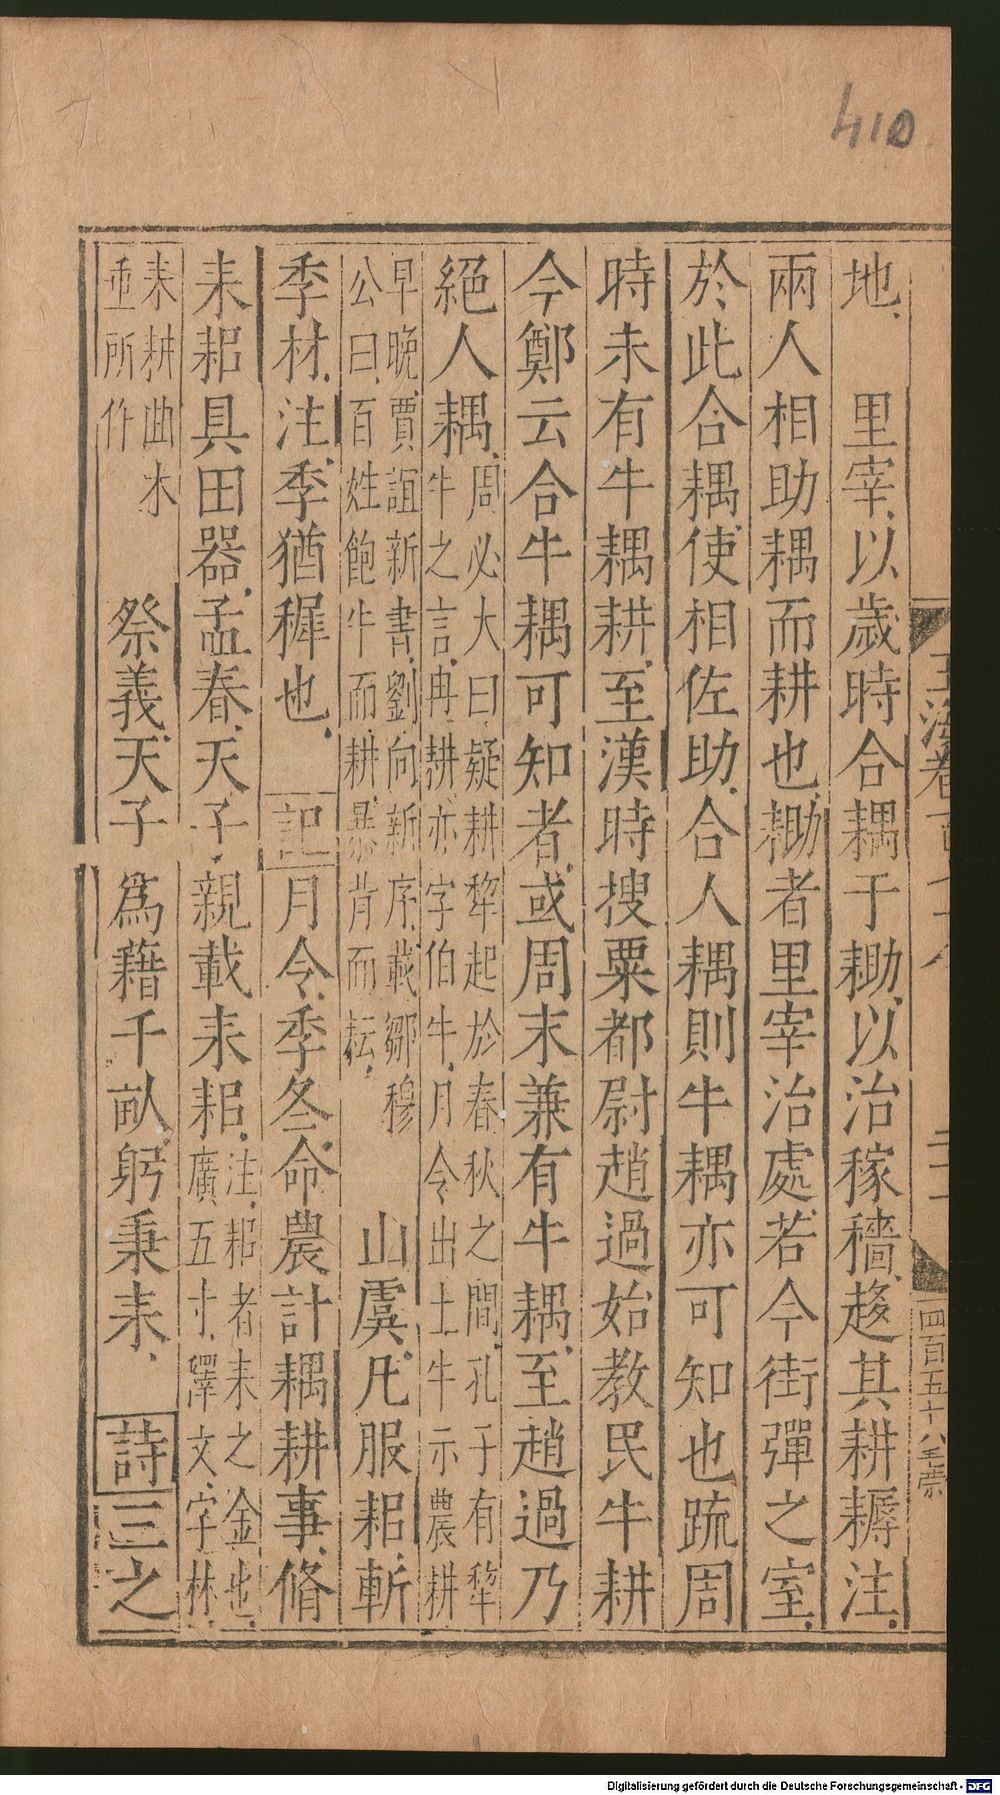 410
地　里宰以歲時合耦于耡以治稼穡趍其耕耨注
兩人相助耦而耕也耡者里宰治處若今街彈之室
於此合耦使相佐助合人耦則牛耦亦可知也疏周
時未有牛耦耕至漢時搜粟都尉趙過始教民牛耕
今鄭云合牛耦可知者或周末兼有牛耦至趙過乃
絕人耦
周必大曰疑耕犂起於春秋之間孔子有犂
牛之言冉耕亦字伯牛月令出土牛示農耕
早晚賈誼新書劉向新序載鄒穆
公曰百姓飽牛而耕暴背而耘
山虞凡服耜斬
季材注季猶稺也　記月令季冬命農計耦耕事脩
耒耜具田器孟春天子親載耒耜
注耜者耒之金也
廣五寸釋文字林
耒耕曲木
垂所作
祭義天子爲藉千畝躬秉耒　詩三之
玉海卷
四百五十八
Digitalisierung gefördert durch die Deutsche Forschungsgemeinschaft - DFG